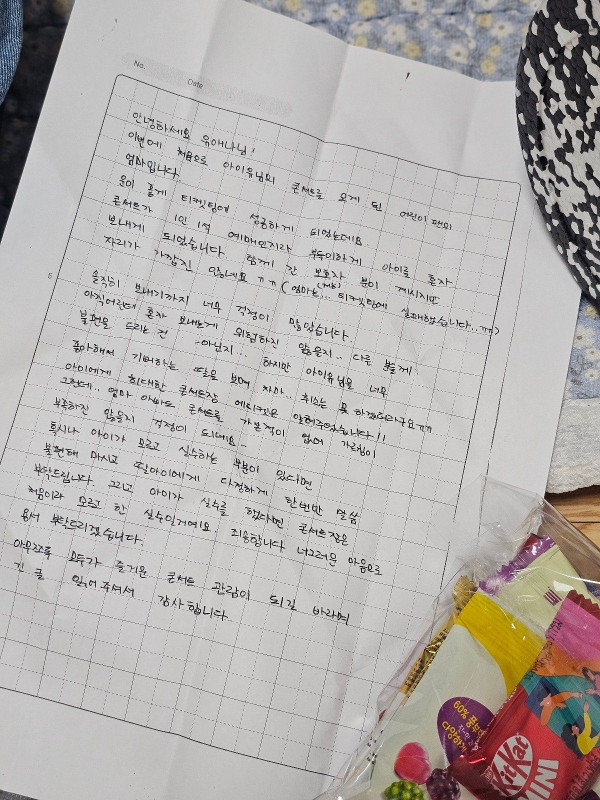 No.
Date
안녕하세요 유애나님!
이번에 처음으로 아이유님의 콘서트를 오게 된 어린이 팬의
엄마입니다.
운이 좋게 티켓팅에 성공하게 되었는데요.
콘서트가 1인 1석 예매인지라 부득이하게 아이를 혼자
보내게 되었습니다. 함께 간 보호자 분이 계시지만
자리가 가깝진 않네요 ㅠㅠ (엄마는... 티켓팅에 실패했습니다..ㅠㅠ)
5
솔직히 보내기까지 너무 걱정이 많았습니다
아직어린데 혼자 보내는게 위험하진 않을지.. 다른 분들께
불편을 드리는 건 아닌지.. 하지만 아이유님을 너무
좋아해서 기뻐하는 딸을 보며 차마.. 취소는 못 하겠더라구요ㅠㅠ
아이에게 최대한 콘서트장 에티켓은 알려주었습니다!!
그런데.. 엄마 아빠도 콘서트를 가본적이 없어 가르침이
부족하진 않을지 걱정이 되네요~
혹시나 아이가 모르고 실수하는 부분이 있다면
불편해 마시고 딸아이에게 다정하게 한번만 말씀
부탁드립니다 그리고 아이가 실수를 했다면 콘서트장은
처음이라 모르고 한 실수일거예요 죄송합니다 너그러운 마음으로
용서 부탁드리겠습니다.
아무쪼록 모두가 즐거운 콘서트 관람이 되길 바라며
긴 글 읽어주셔서 감사합니다
60% 풍부
다양하게
KitKat
MINI